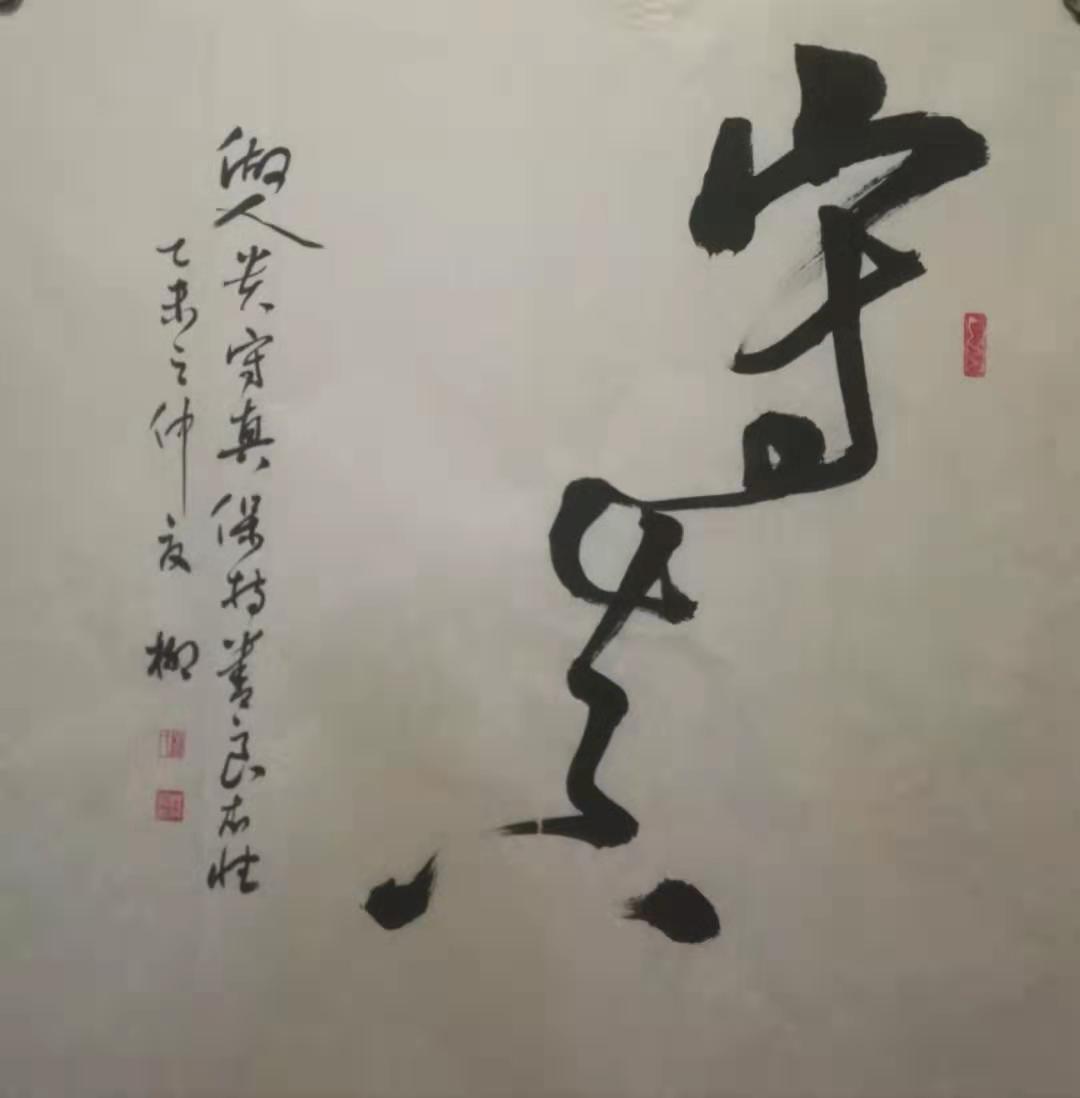 守真
做人贵守真保持善良本性
乙未之仲夏 柳